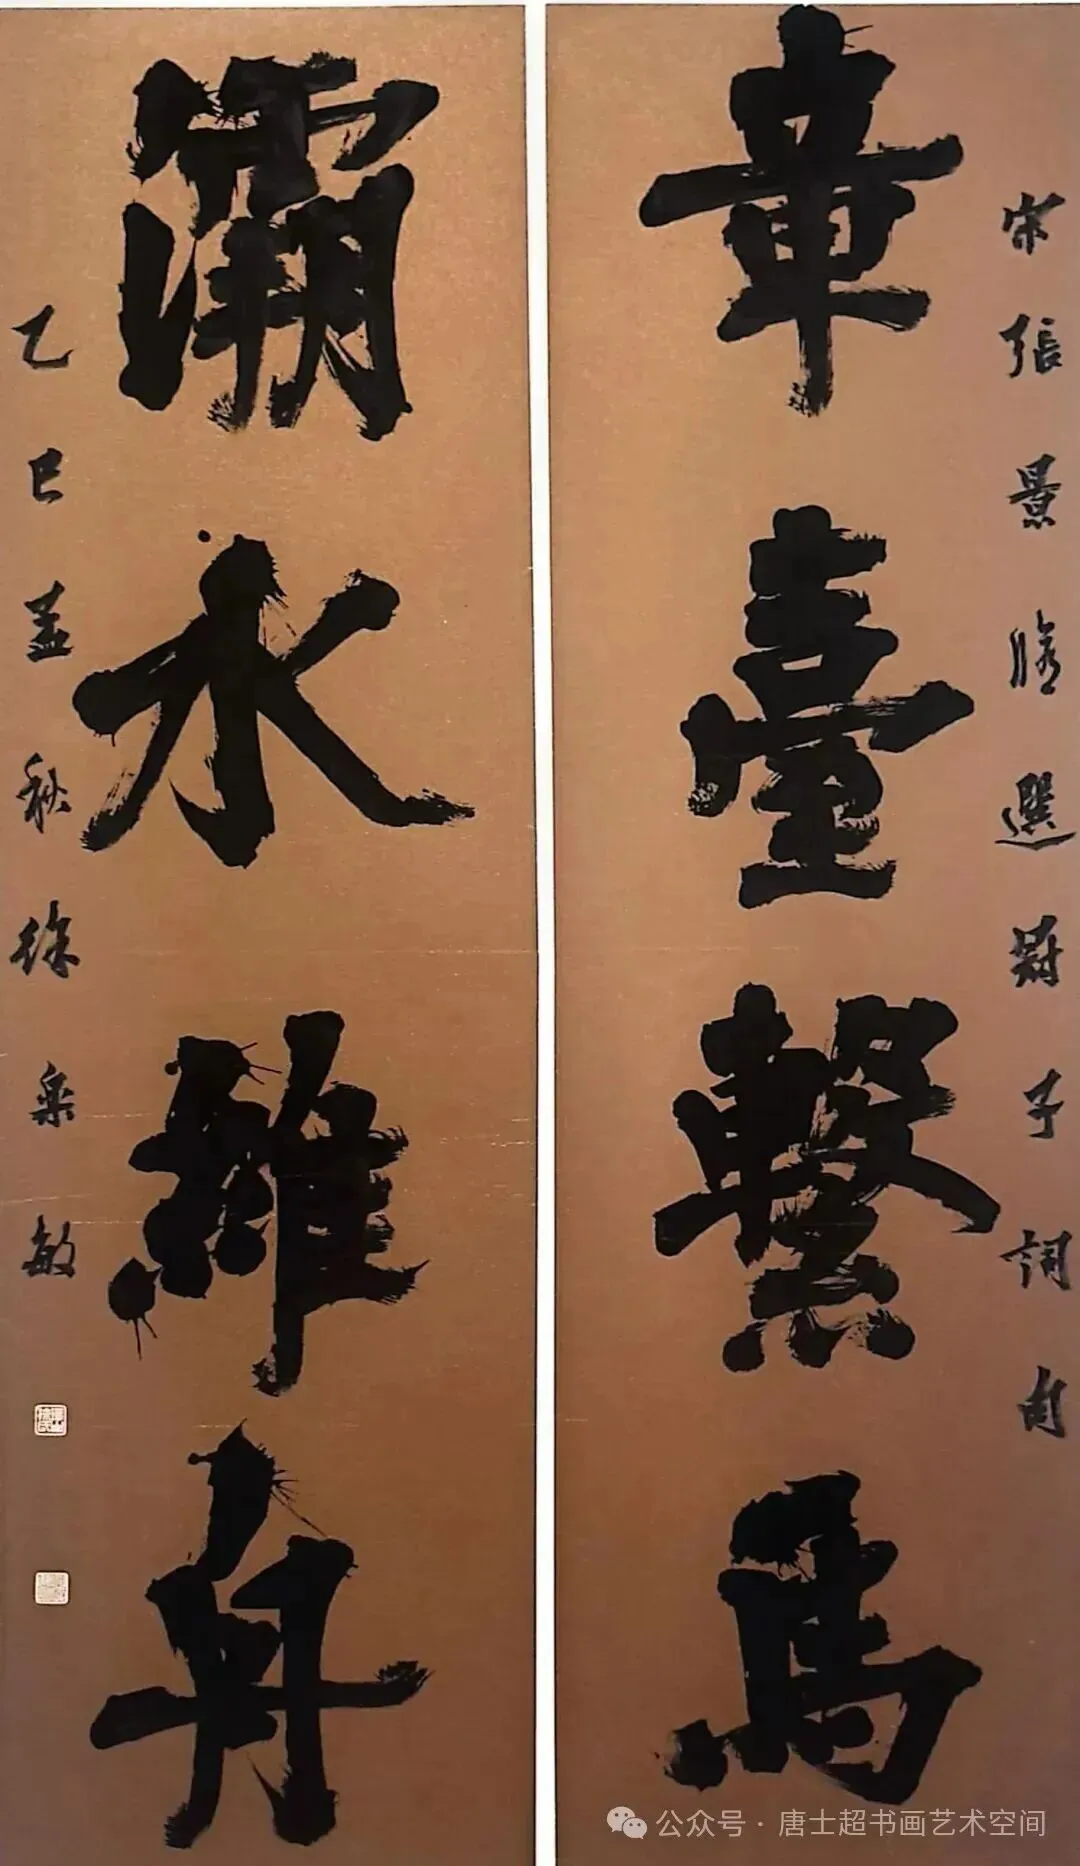 宋張景脩選冠子詞句
章臺繫馬
灞水維舟
乙巳孟秋徐敏
公众号·唐士超书画艺术空间